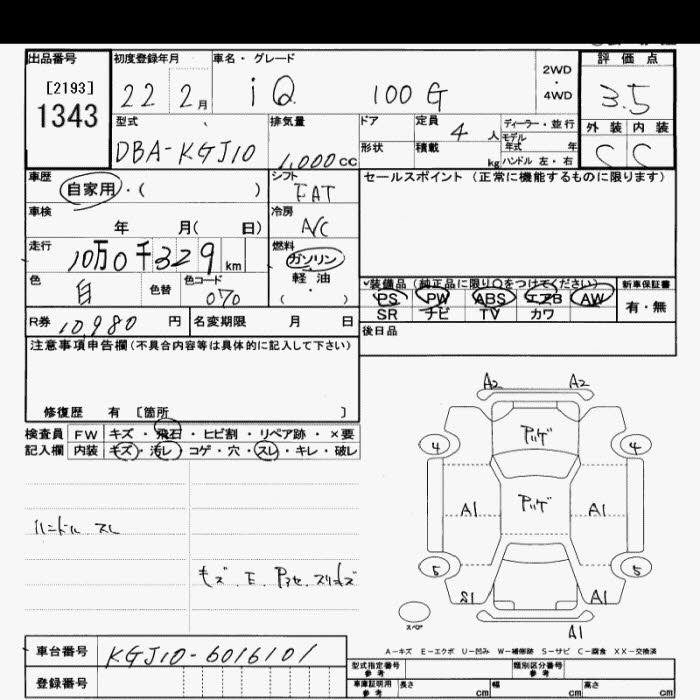 出品番号 初度登録年月 車名・グレード 評価点
[2193]
1343
22 2月 iQ 100G 2WD・4WD 3.5
型式 排気量 ドア 定員 4人 ディーラー・並行 外装 内装
DBA-KGJ10 1,000cc 形状 積載 kg モデル年式 年 C C
ハンドル 左・右
車歴 自家用・( ) シフト FAT セールスポイント (正常に機能するものに限ります)
車検 年 月( 日) 冷房 A/C
走行 10万0千329km 燃料 ガソリン
軽油
・( )
色 白 色替 色コード 070
装備品 (純正品に限り○をつけてください) 新車保証書
PS PW ABS エアB AW 有・無
SR ナビ TV カワ
R券 10,980円 名変期限 月 日 後日品
注意事項申告欄(不具合内容等は具体的に記入して下さい)
修復歴 有 [箇所 ]
検査員 FW キズ・飛石・ヒビ割・リペア跡・×要
記入欄 内装 キズ・汚レ・コゲ・穴・スレ・キレ・破レ
A2 A2
4 4
A1 A1
ハンドル スレ
5 5
S1 A1
スペア
A1
A-キズ E-エクボ U-凹み W-補修跡 S-サビ C-腐食 XX-交換済
車台番号 KGJ10-6016101
登録番号
型式指定番号 参考 類別区分番号 参考
車庫証明用 参考 長さ cm 幅 cm 高さ cm